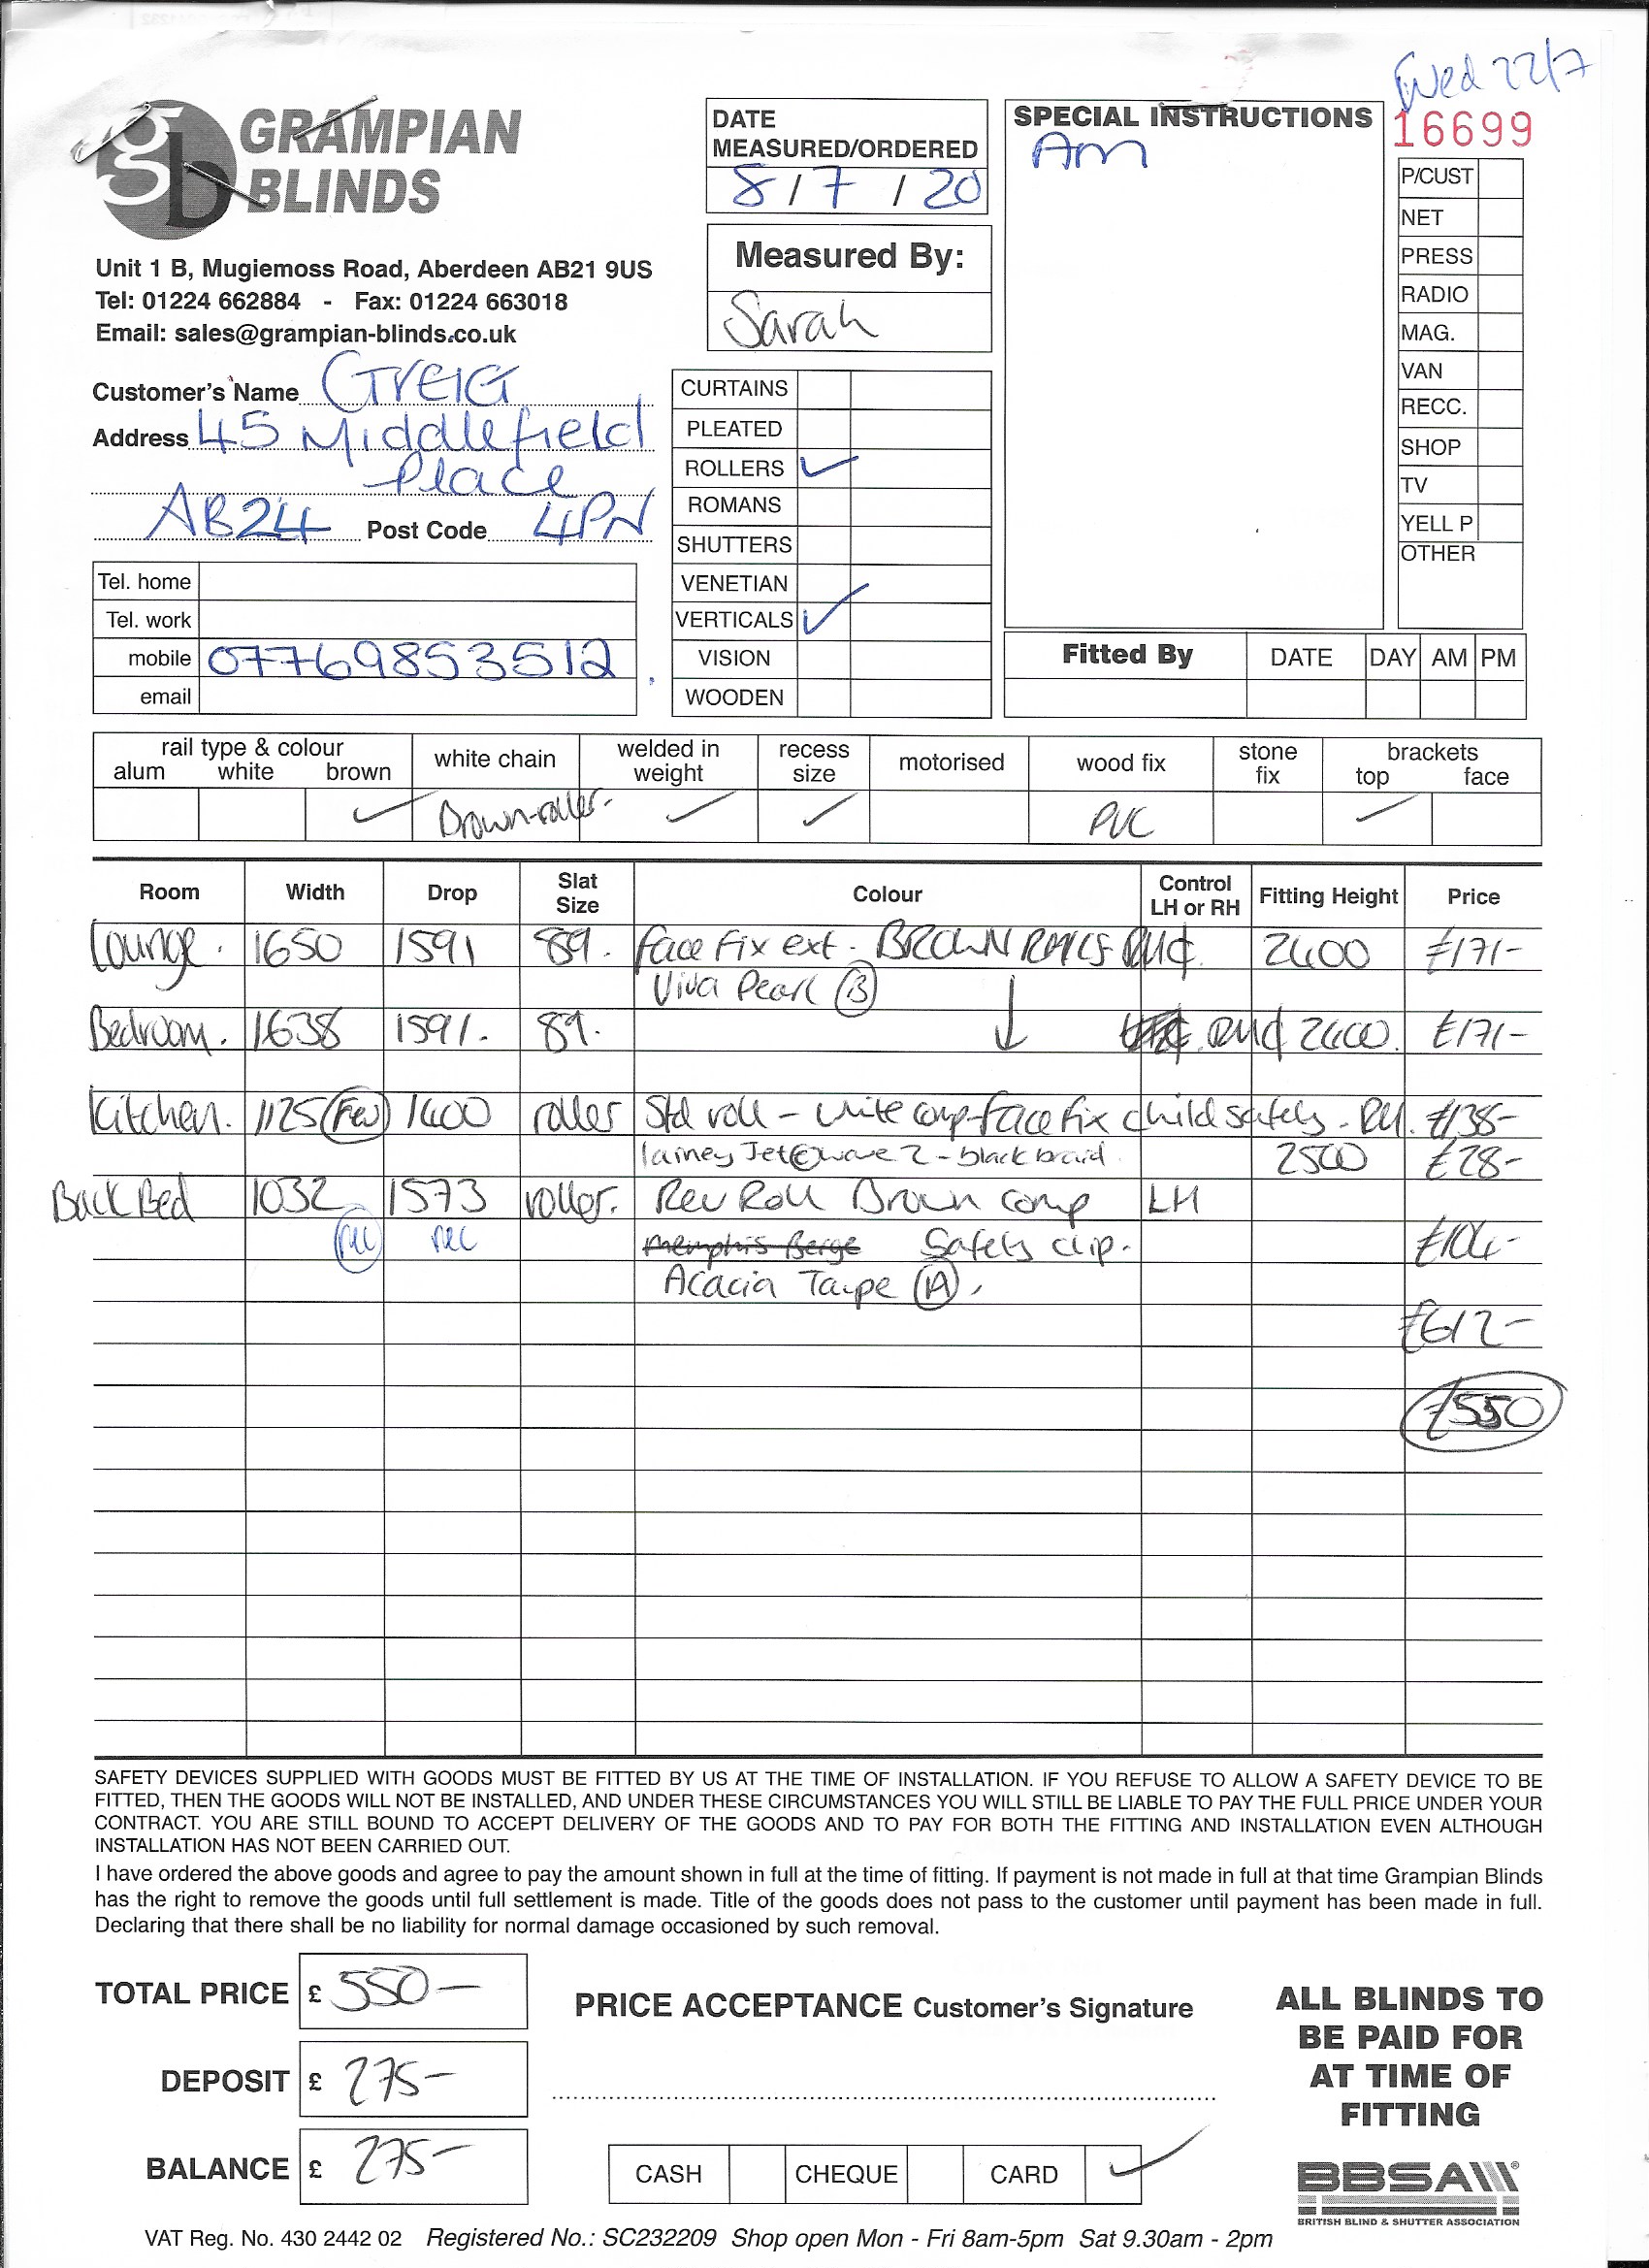 Wed 22/7
16699
GRAMPIAN
BLINDS
gb
Unit 1 B, Mugiemoss Road, Aberdeen AB21 9US
Tel: 01224 662884 - Fax: 01224 663018
Email: sales@grampian-blinds.co.uk
Customer's Name GREIG
Address 45 Middlefield
Place
AB24 Post Code 4PN
Tel. home
Tel. work
mobile 07769853512
email
DATE
MEASURED/ORDERED
8/7/20
Measured By:
Sarah
CURTAINS
PLEATED
ROLLERS ✓
ROMANS
SHUTTERS
VENETIAN
VERTICALS ✓
VISION
WOODEN
SPECIAL INSTRUCTIONS
Am
P/CUST
NET
PRESS
RADIO
MAG.
VAN
RECC.
SHOP
TV
YELL P
OTHER
Fitted By DATE DAY AM PM
rail type & colour white chain welded in weight recess size motorised wood fix stone fix brackets
alum white brown top face
✓ Brown-roller. ✓ ✓ PVC ✓
Room Width Drop Slat Size Colour Control LH or RH Fitting Height Price
Lounge. 1650 1591 89. face fix ext. BROWN RAILS RH¢ 2400 £171-
Viva Pearl (B)
Bedroom. 1638 1591. 89. ↓ RH¢ 2400 £171-
Kitchen. 1125 (Fw) 1400 roller Std roll - white comp-face fix child safety. RH. £138-
Lainey Jet (C) wave 2 - black braid 2500 £28-
Back Bed 1032 1573 roller. Rev Roll Brown comp LH
rec rec Memphis Beige Safety clip. £104-
Acacia Taupe (A).
£612-
£550
SAFETY DEVICES SUPPLIED WITH GOODS MUST BE FITTED BY US AT THE TIME OF INSTALLATION. IF YOU REFUSE TO ALLOW A SAFETY DEVICE TO BE
FITTED, THEN THE GOODS WILL NOT BE INSTALLED, AND UNDER THESE CIRCUMSTANCES YOU WILL STILL BE LIABLE TO PAY THE FULL PRICE UNDER YOUR
CONTRACT. YOU ARE STILL BOUND TO ACCEPT DELIVERY OF THE GOODS AND TO PAY FOR BOTH THE FITTING AND INSTALLATION EVEN ALTHOUGH
INSTALLATION HAS NOT BEEN CARRIED OUT.
I have ordered the above goods and agree to pay the amount shown in full at the time of fitting. If payment is not made in full at that time Grampian Blinds
has the right to remove the goods until full settlement is made. Title of the goods does not pass to the customer until payment has been made in full.
Declaring that there shall be no liability for normal damage occasioned by such removal.
TOTAL PRICE £ 550-
DEPOSIT £ 275-
BALANCE £ 275-
PRICE ACCEPTANCE Customer's Signature
CASH CHEQUE CARD ✓
ALL BLINDS TO
BE PAID FOR
AT TIME OF
FITTING
BBSA®
BRITISH BLIND & SHUTTER ASSOCIATION
VAT Reg. No. 430 2442 02 Registered No.: SC232209 Shop open Mon - Fri 8am-5pm Sat 9.30am - 2pm